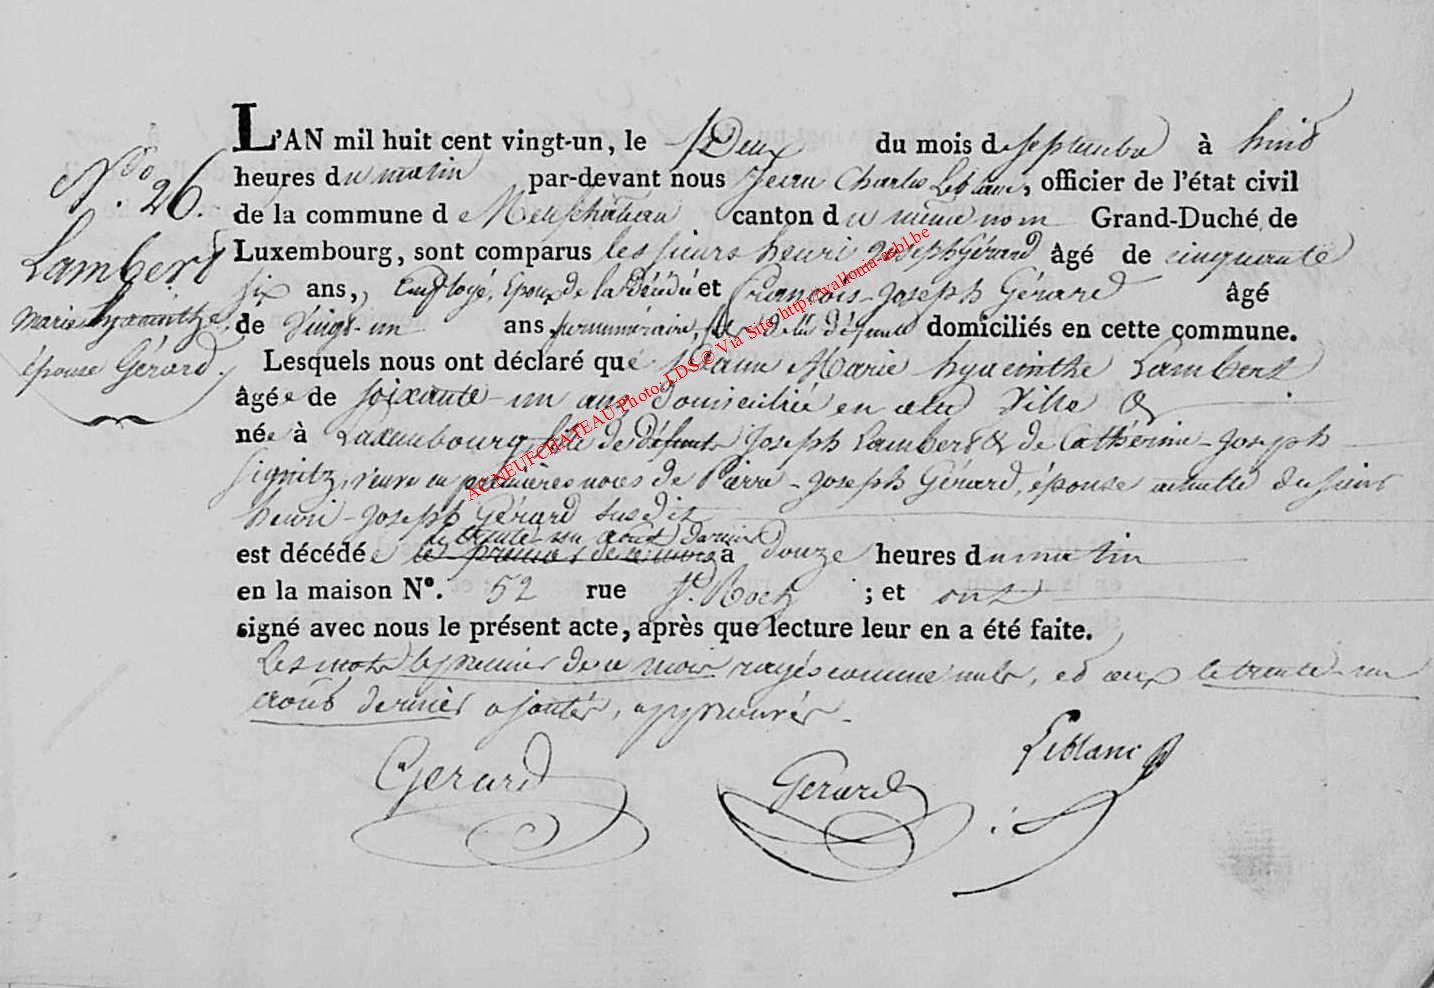 L'AN mil huit cent vingt-un, le Deux du mois de septembre à huit
heures du matin par-devant nous Jean Charles Leblanc, officier de l'état civil
de la commune de Neufchâteau canton du même nom Grand-Duché de
Luxembourg, sont comparus les sieurs henri Joseph Gérard âgé de cinquante
six ans, Employé, Epoux de la Décédée et François-Joseph Gérard âgé
de Vingt-un ans surnuméraire, fils de la défunte domiciliés en cette commune.
Lesquels nous ont déclaré que Dame Marie hyacinthe Lambert
âgée de soixante-un ans Domiciliée en cette Ville &
née à Luxembourg, fille de défunts Joseph Lambert & de Cathérine-Joseph
Signitz, veuve en premières noces de Pierre-Joseph Gérard, épouse actuelle du sieur
henri-Joseph Gérard susdit
le trente-un août dernier
est décédée le premier de ce mois à douze heures du matin
en la maison N°. 52 rue St. Roch ; et ont
signé avec nous le présent acte, après que lecture leur en a été faite.
Les mots le premier de ce mois rayés comme nuls, et ceux le trente-un
août dernier ajoutés, approuvés.
Gerard Gerard Leblanc
N.ro 26.
Lambert
Marie hyacinthe,
épouse Gérard.
AC NEUFCHATEAU Photo: LDS © Via Site http://wallonia-asbl.be